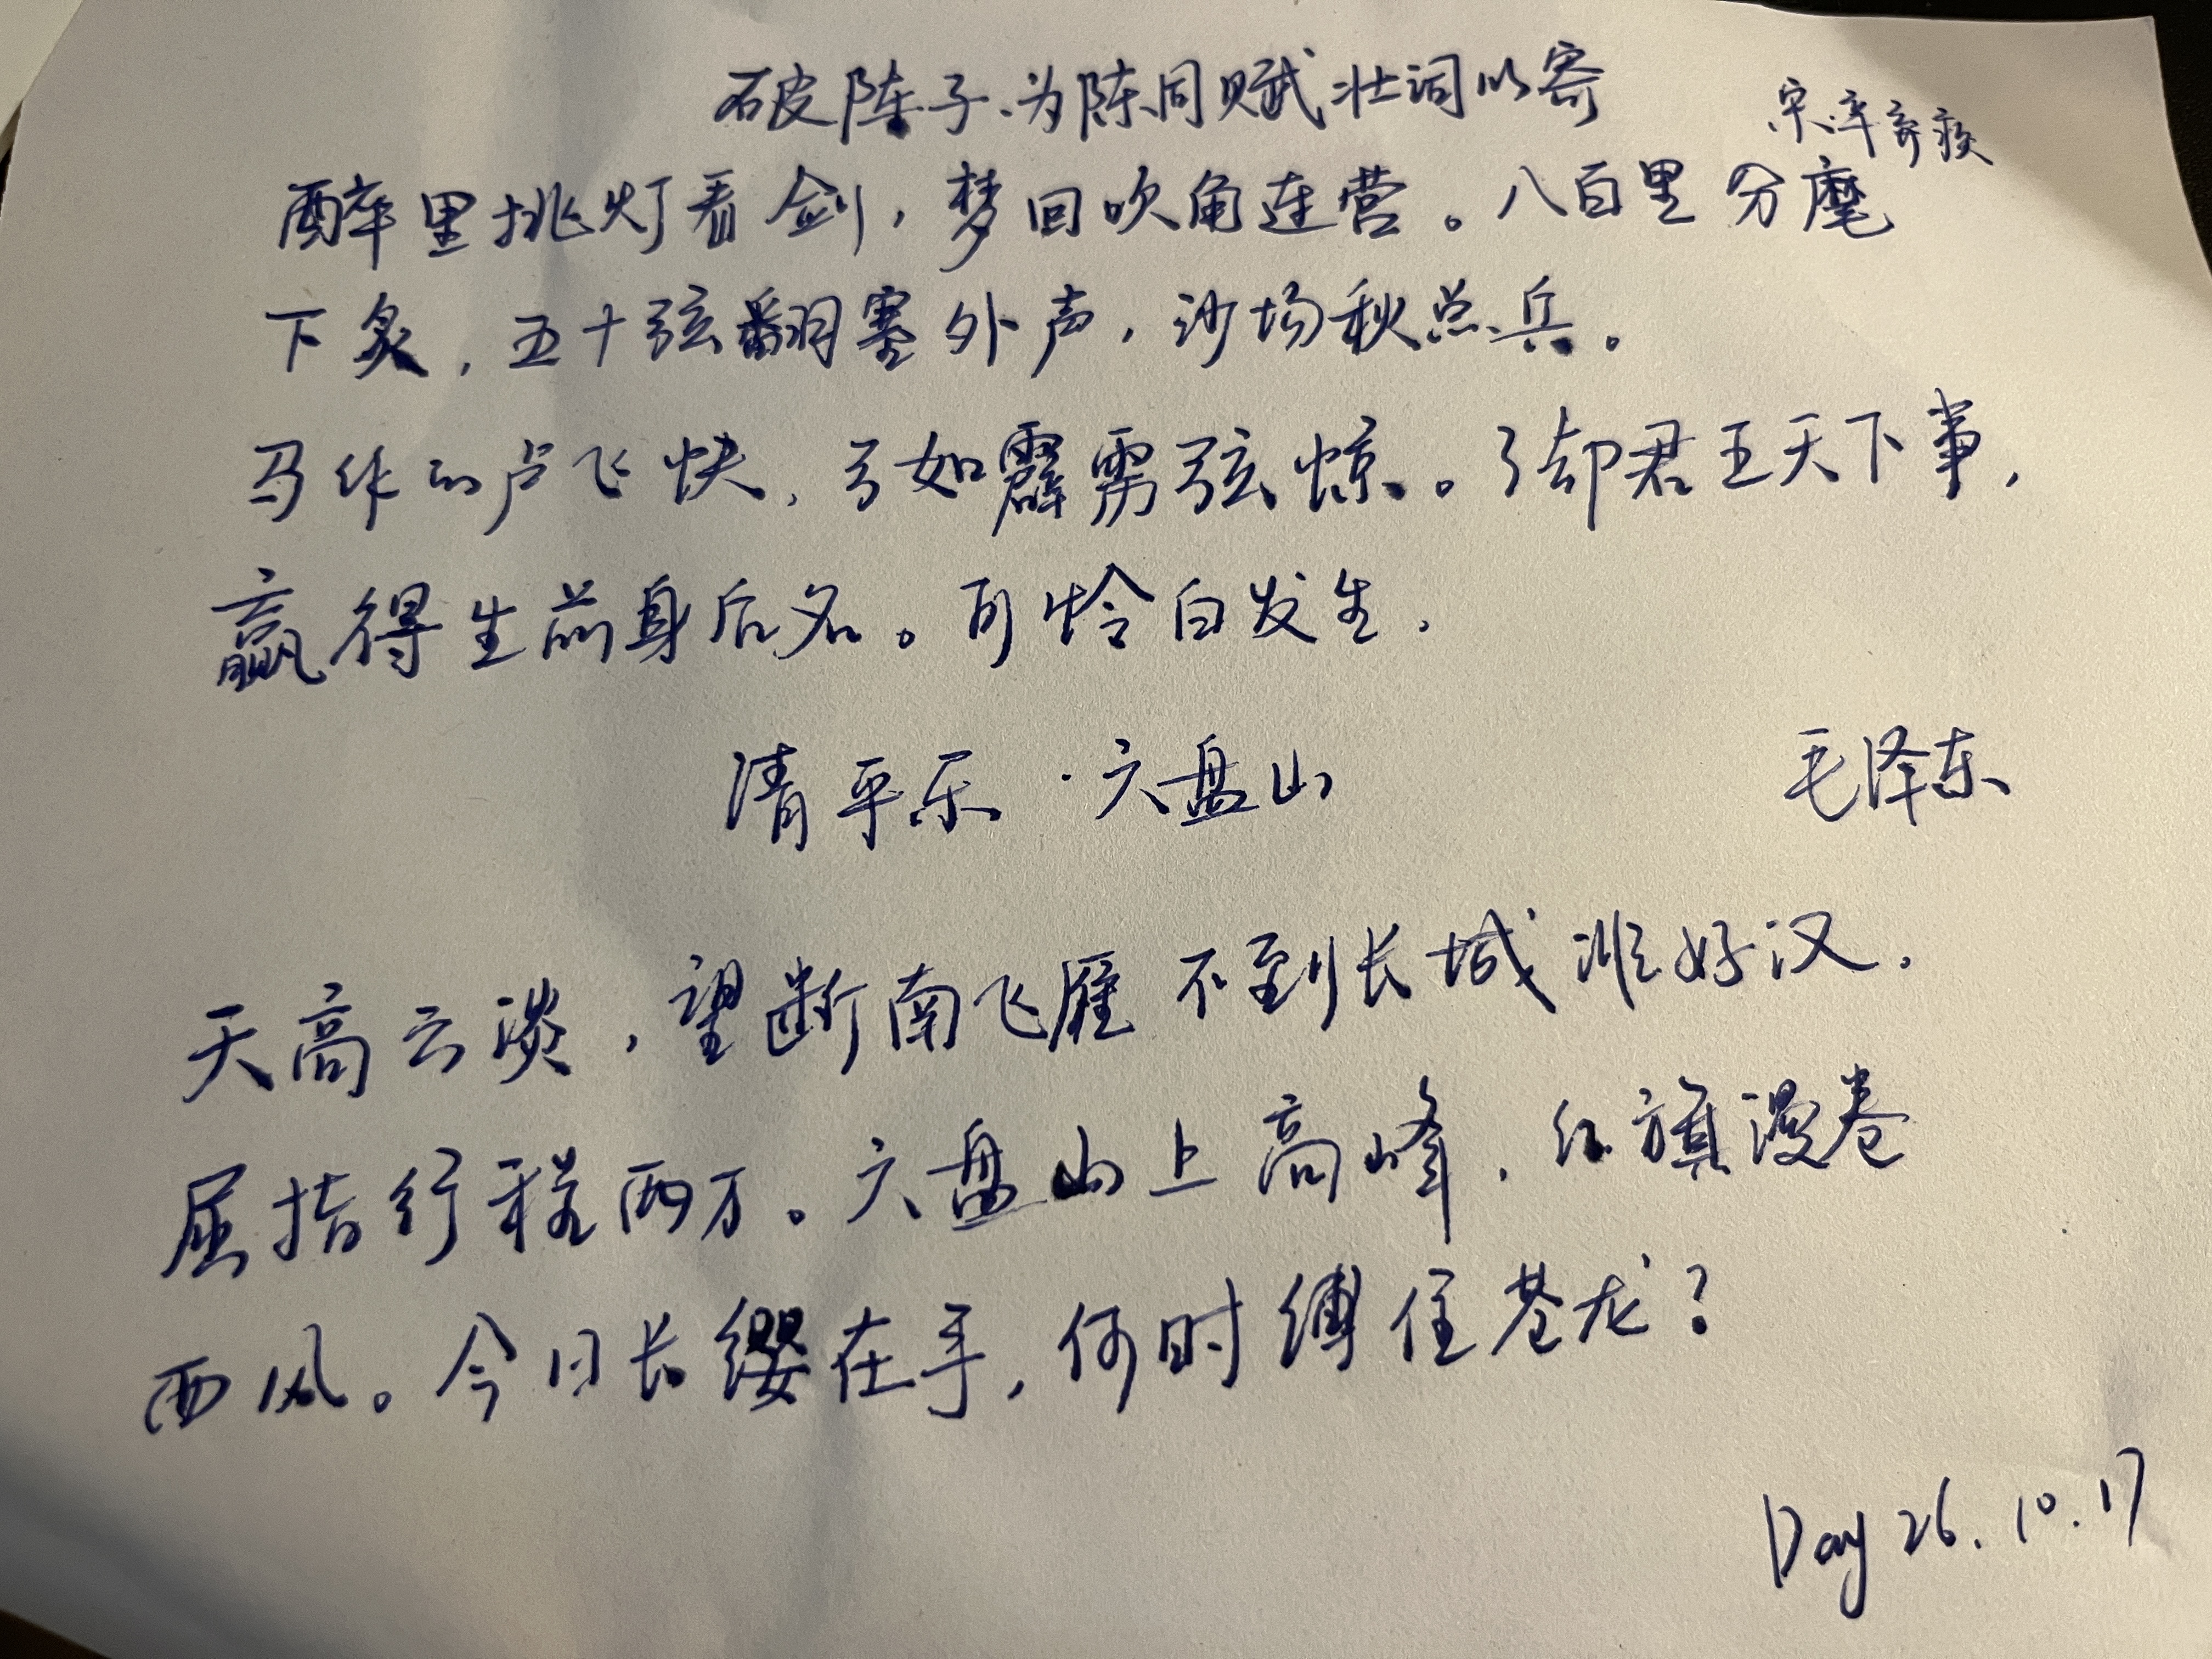 破阵子·为陈同赋壮词以寄
宋·辛弃疾
醉里挑灯看剑，梦回吹角连营。八百里分麾
下炙，五十弦翻塞外声，沙场秋点兵。
马作的卢飞快，弓如霹雳弦惊。了却君王天下事，
赢得生前身后名。可怜白发生.
清平乐·六盘山
毛泽东
天高云淡，望断南飞雁 不到长城非好汉.
屈指行程两万。六盘山上高峰，红旗漫卷
西风。今日长缨在手，何时缚住苍龙？
Day 26. 10. 17